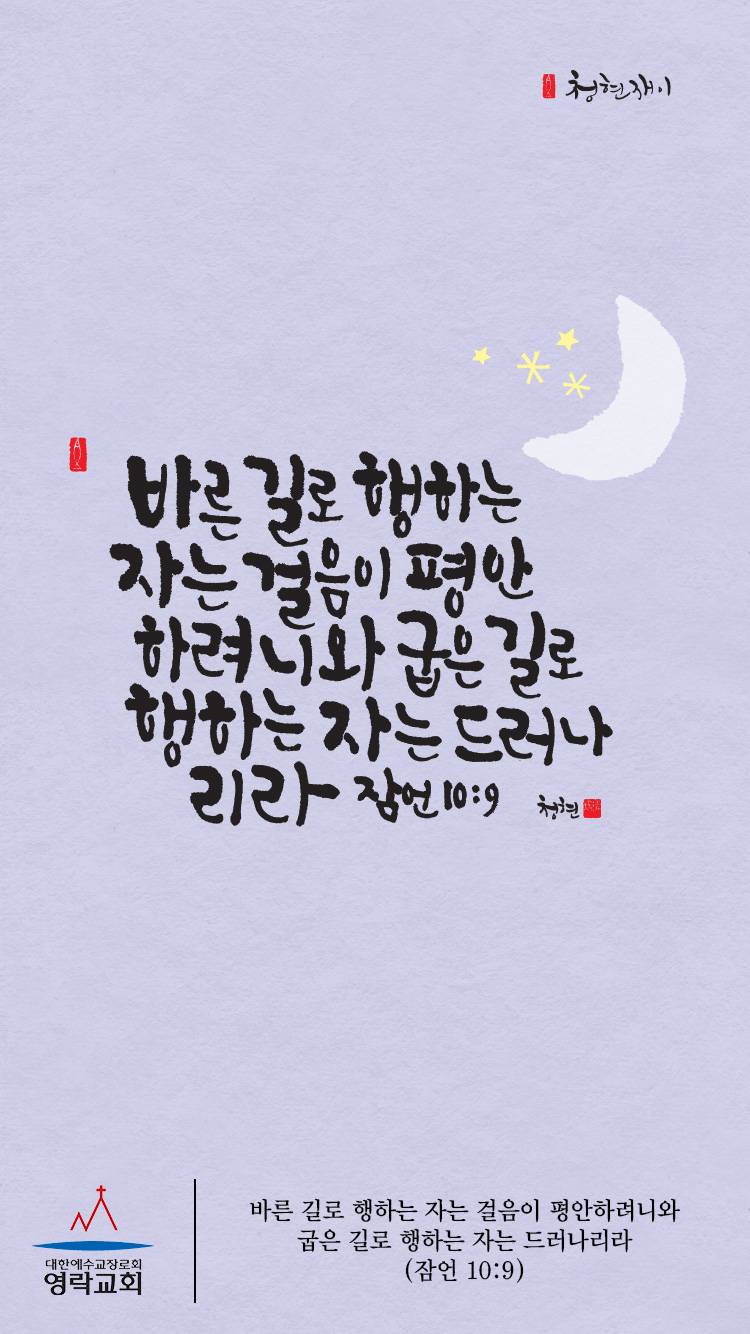 청현재이
바른 길로 행하는
자는 걸음이 평안
하려니와 굽은 길로
행하는 자는 드러나
리라 잠언 10:9
청현
대한예수교장로회
영락교회
바른 길로 행하는 자는 걸음이 평안하려니와
굽은 길로 행하는 자는 드러나리라
(잠언 10:9)